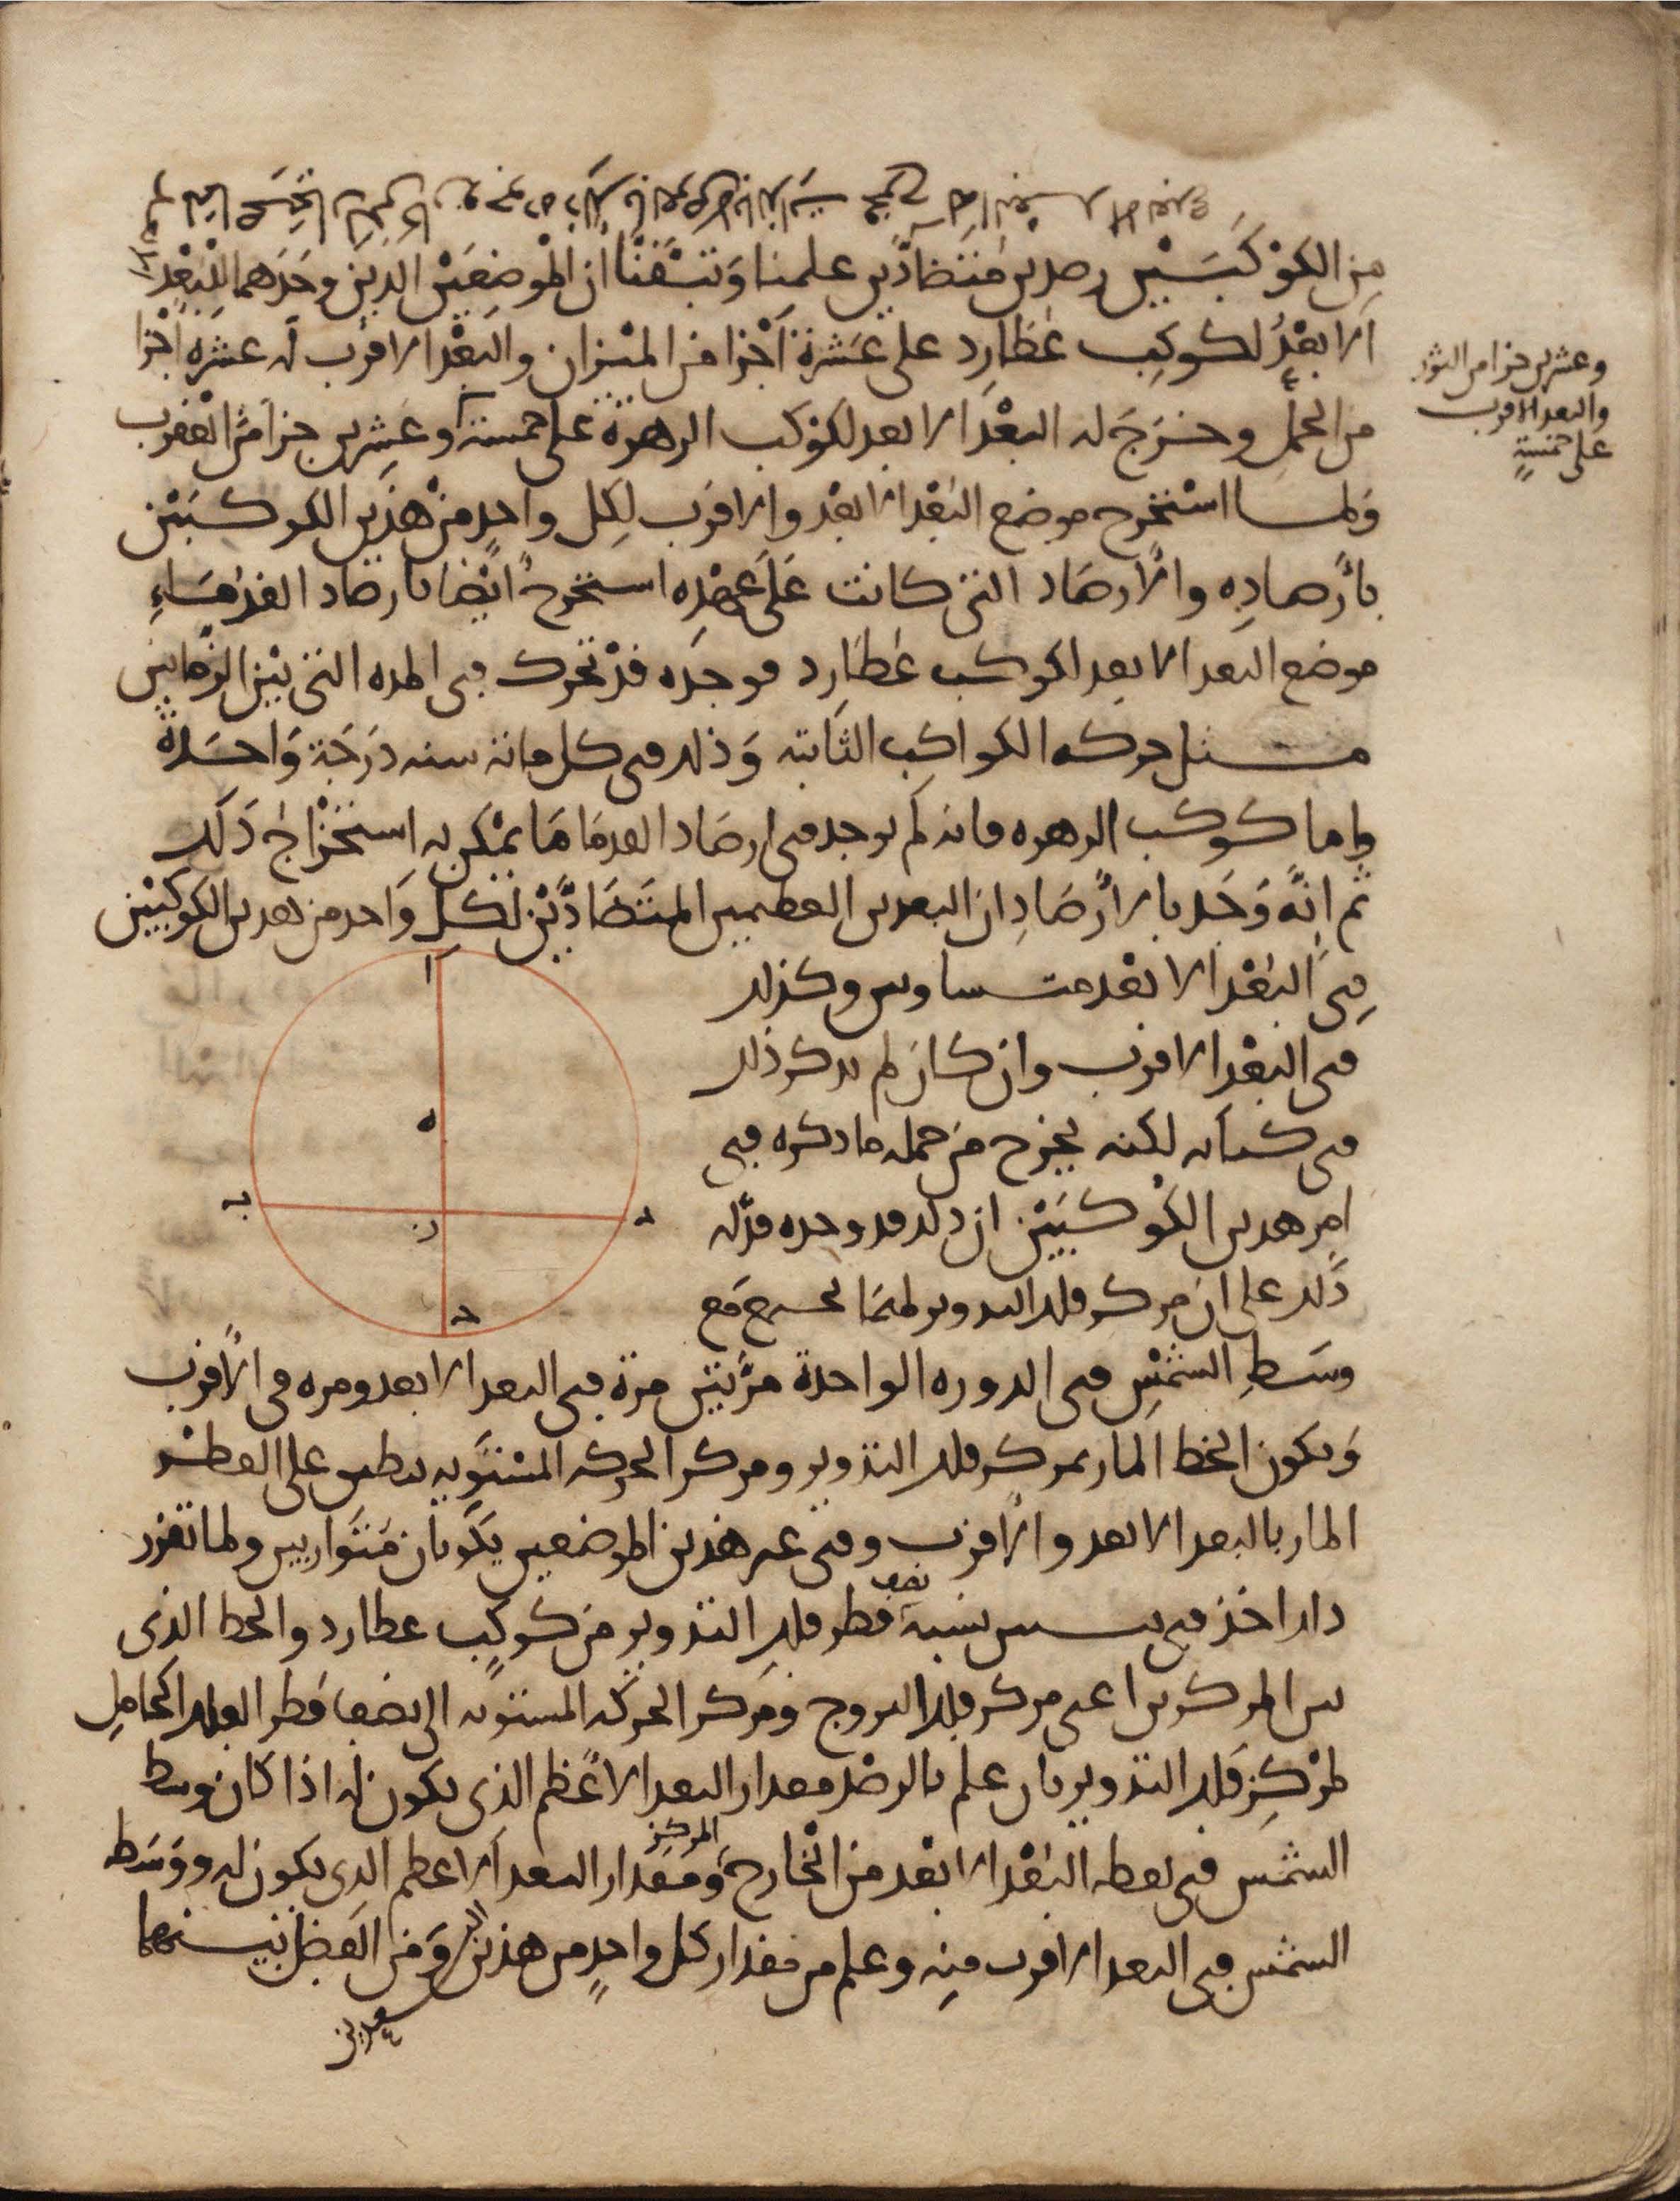 من الكوكبين رصدين متضادين علمنا وتيقنا ان الموضعين الذين وجدهما للبعد
الابعد لكوكب عطارد على عشرة اجزا من الميزان والبعد الاقرب له عشره اجزا
من الحمل وخرج له البعد الابعد لكوكب الزهرة على خمسة وعشرين جزا من العقرب
وعشرين جزا من الثور
والبعد الاقرب
على خمسة
ولما استخرج موضع البعد الابعد والاقرب لكل واحد من هذين الكوكبين
بأرصاده والأرصاد التي كانت على عهده استخرج أيضا بارصاد القدماء
موضع البعد الابعد لكوكب عطارد فوجده قد تحرك في المده التي بين الزمانين
مثل حركه الكواكب الثابته وذلك في كل مائة سنه درجة واحدة
واما كوكب الزهره فانه لم يوجد في ارصاد القدما ما يمكن به استخراج ذلك
ثم انه وجد بالأرصاد ان البعدين العظيمين المتضادين لكل واحد من هذين الكوكبين
في البعد الابعد متساويين وكذلك
في البعد الاقرب وان كان لم يذكر ذلك
في كتابه لكنه يخرج من جمله ما ذكره في
امر هذين الكوكبين ان ذلك قد وجده فدله
ذلك على ان مركز فلك التدوير لهما يجتمع مع
ا
ه
ب
ز
د
ج
وسط الشمس في الدوره الواحدة مرتين مرة في البعد الابعد ومره في الأقرب
ويكون الخط المار بمركز فلك التدوير ومركز الحركه المستويه ينطبق على القطر
المار بالبعد الابعد والأقرب وفي غير هذين الموضعين يكونان متوازيين ولما تقرر
ذلك اخذ في تبيين نسبة نصف قطر فلك التدوير من كوكب عطارد والخط الذي
بين المركزين اعني مركز فلك البروج ومركز الحركه المستويه الى نصف قطر الفلك الحامل
لمركز فلك التدوير بان علم بالرصد مقدار البعد الاعظم الذي يكون له اذا كان وسط
الشمس في نقطه البعد الابعد من الخارج المركز ومقدار البعد الاعظم الذي يكون له ووسط
الشمس في البعد الاقرب منه وعلم من مقدار كل واحد من هذين البعدين ومن الفضل بينهما